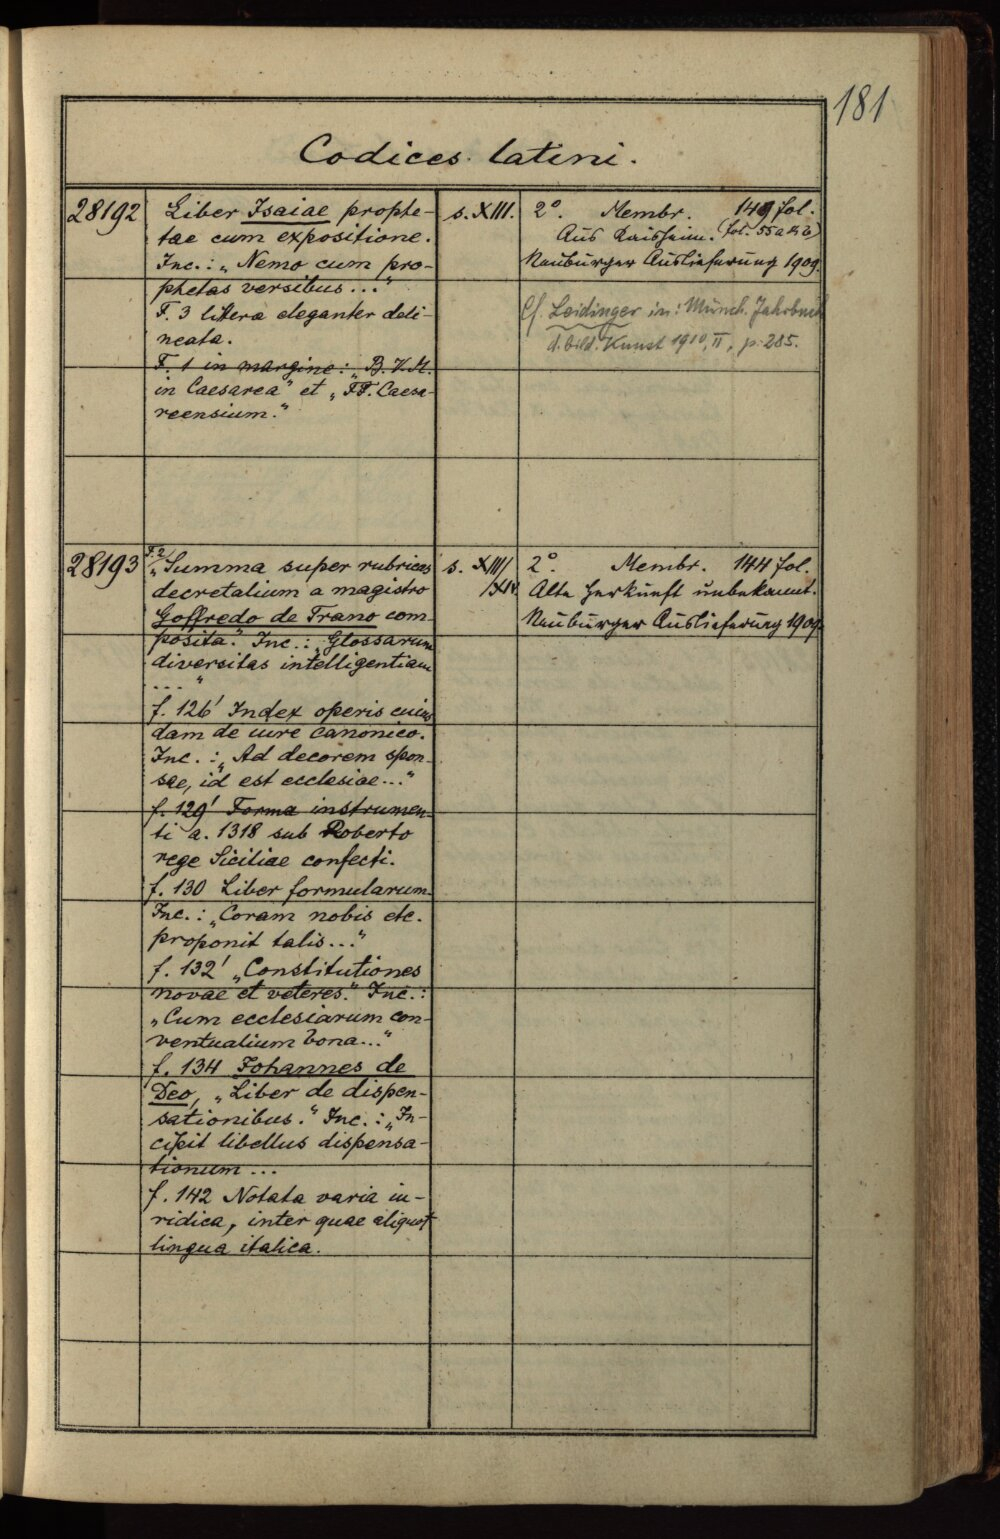 181
Codices latini.
28192
Liber Isaiae prophe-
tae cum expositione.
Inc.: „Nemo cum pro-
phetas versibus..."
F. 3 litera eleganter deli-
neata.
F. 1 in margine: „B. V. M.
in Caesarea" et „FF. Caesa-
reensium."
s. XIII.
2°. Membr. 149 fol.
(fol. 55 a & b)
Aus Kaisheim.
Neuburger Auslieferung 1909.
Cf. Leidinger in: Münch. Jahrbuch
d. bild. Kunst 1910, II, p. 285.
28193
F. 2
„Summa super rubricas
decretalium a magistro
Goffredo de Trano com-
posita." Inc.: „Glossarum
diversitas intelligentiam
..."
f. 126' Index operis cuius
dam de iure canonico.
Inc.: „Ad decorem spon-
sae, id est ecclesiae..."
f. 129' Forma instrumen-
ti a. 1318 sub Roberto
rege Siciliae confecti.
f. 130 Liber formularum.
Inc.: „Coram nobis etc.
proponit talis..."
f. 132' „Constitutiones
novae et veteres." Inc.:
„Cum ecclesiarum con-
ventualium bona..."
f. 134 Johannes de
Deo, „Liber de dispen-
sationibus." Inc.: „In-
cipit libellus dispensa-
tionum...
f. 142 Notata varia iu-
ridica, inter quae aliquot
lingua italica.
s. XIII/
/XIV.
2°. Membr. 144 fol.
Alte Herkunft unbekannt.
Neuburger Auslieferung 1909.